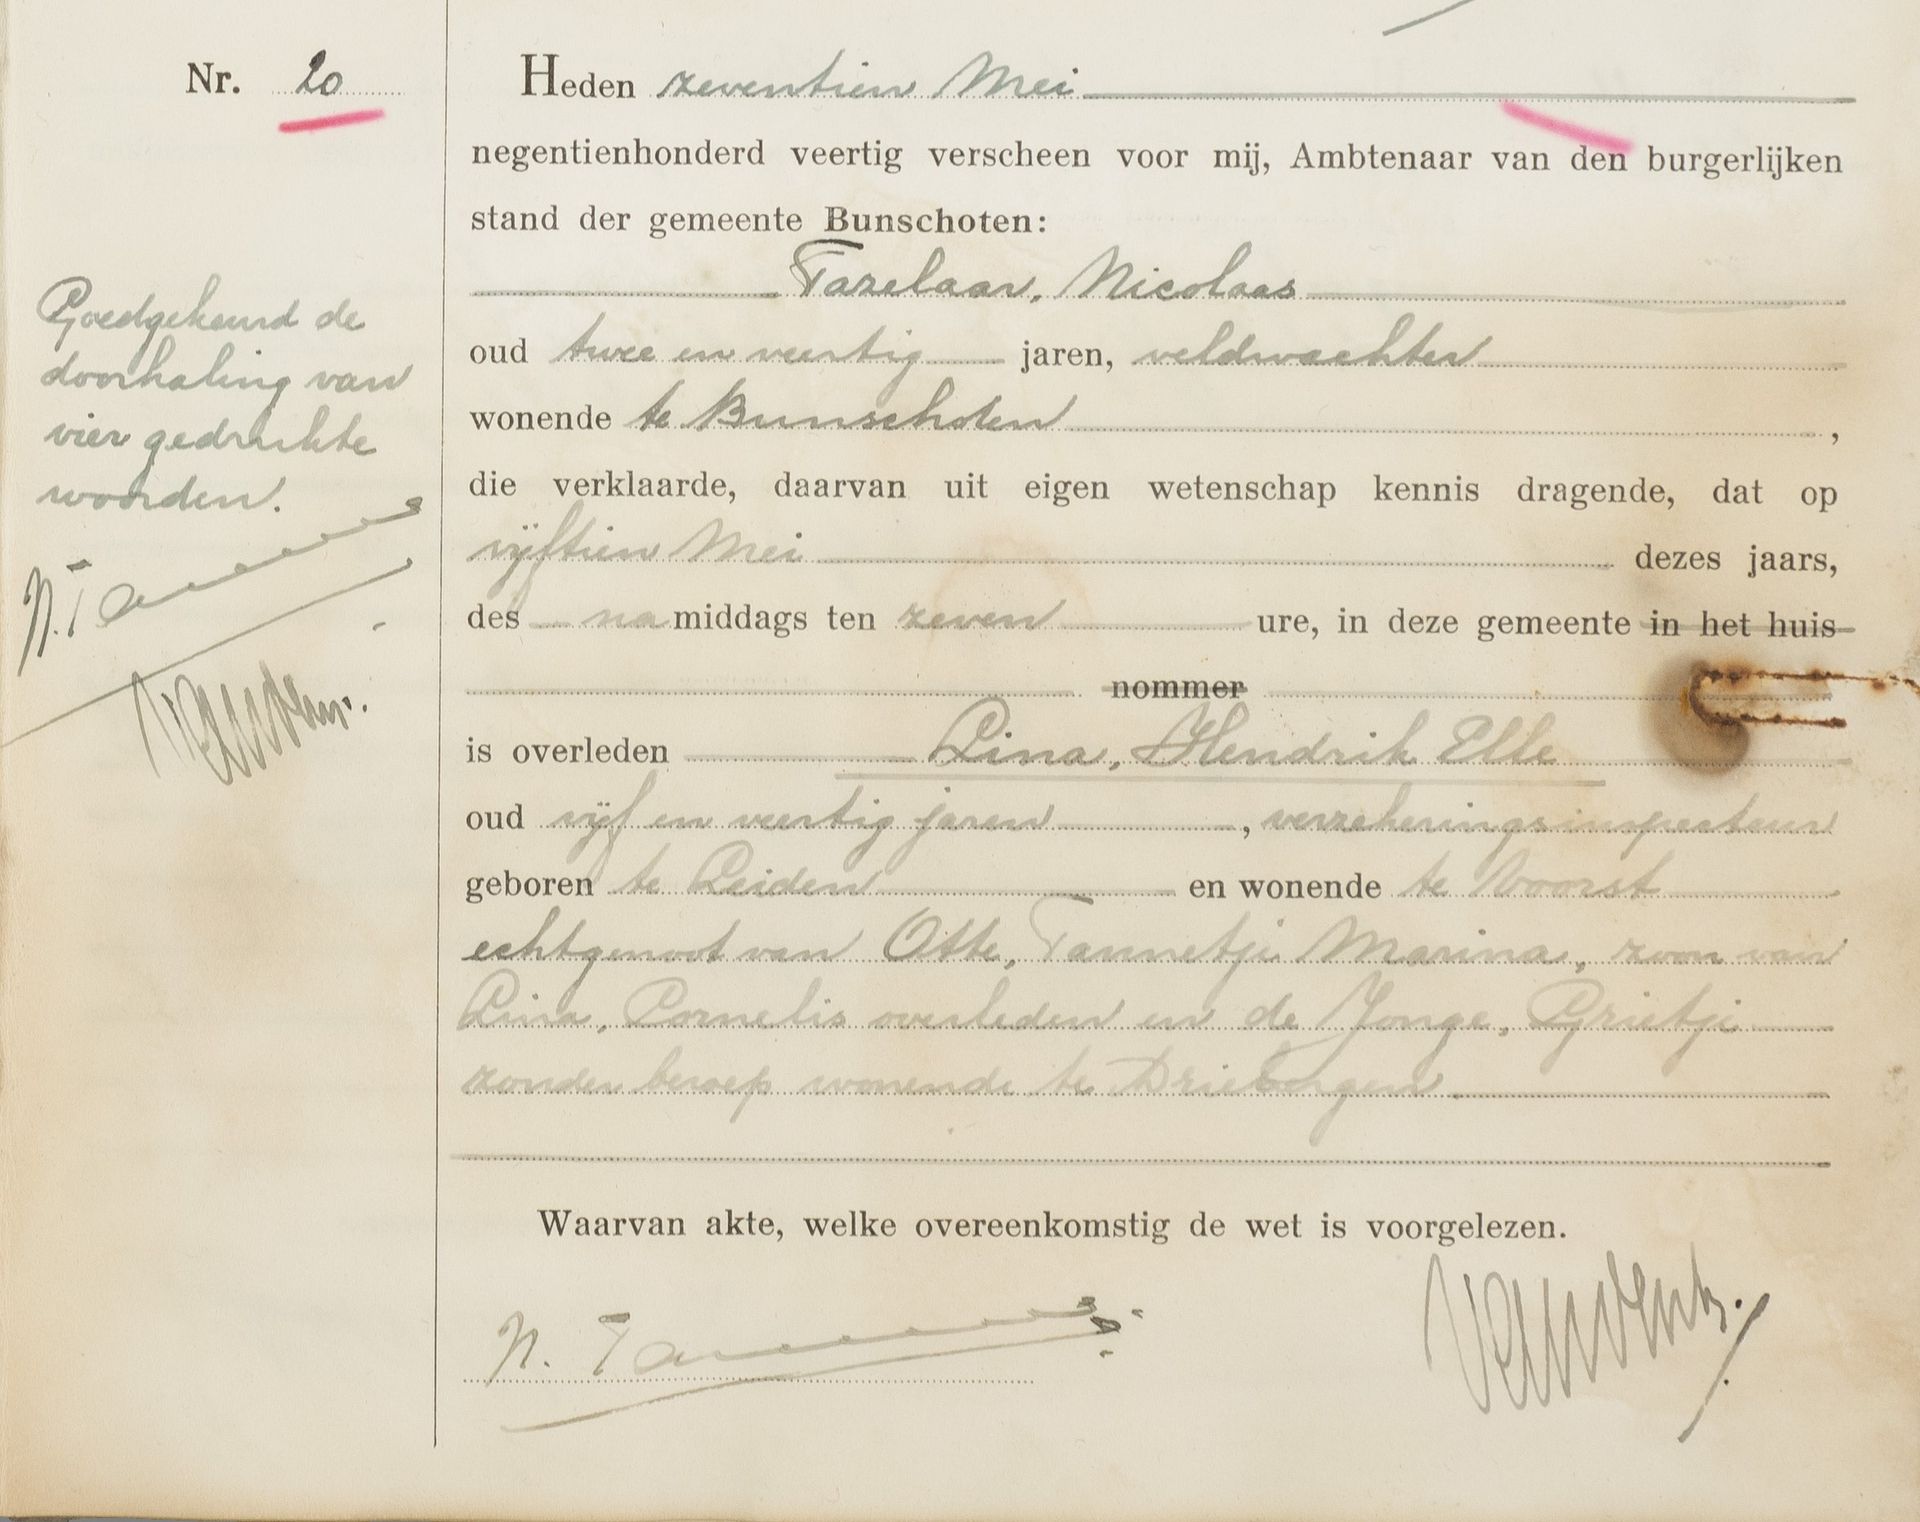 Nr. 20
Heden zeventien Mei
negentienhonderd veertig verscheen voor mij, Ambtenaar van den burgerlijken
stand der gemeente Bunschoten:
Tazelaar, Nicolaas
oud twee en veertig jaren, veldwachter
wonende te Bunschoten ,
die verklaarde, daarvan uit eigen wetenschap kennis dragende, dat op
vijftien Mei dezes jaars,
des namiddags ten zeven ure, in deze gemeente in het huis
nommer
is overleden Lina, Hendrik Elle
oud vijf en veertig jaren , verzekeringsinspecteur
geboren te Leiden en wonende te Voorst
echtgenoot van Otte, Tannetje Marina, zoon van
Lina, Cornelis overleden en de Jonge, Grietje
zonder beroep wonende te Driebergen
Waarvan akte, welke overeenkomstig de wet is voorgelezen.
N.
Goedgekeurd de
doorhaling van
vier gedrukte
woorden.
N.